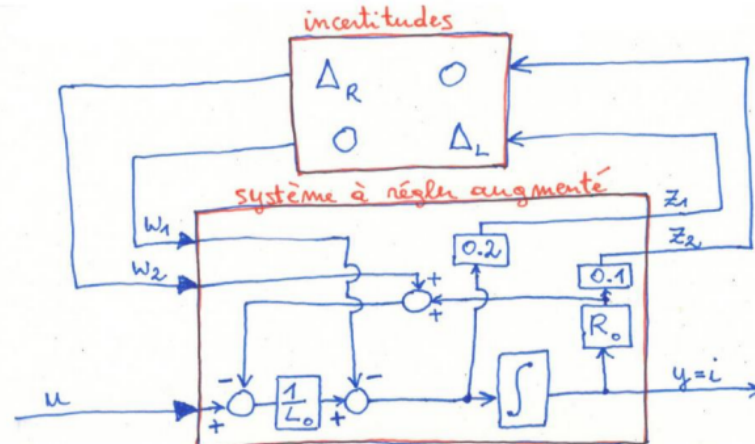 incertitudes
Δ_R O
O Δ_L
système à régler augmenté
w₁ 0.2 z₁
w₂ + + 0.1 z₂
R₀
- 1/L₀ - ∫
u + + y=i